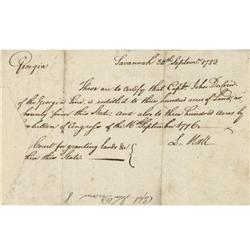 Georgia
Savannah 24th Septemr. 1783
These are to certify that Captn. John
of the Georgia Line, is entitled to three hundred acres of Land, as
bounty from this State; and also to three hundred Acres by
a Resolution of Congress of the 16th September 1776.
L. Hall
Court for granting Lands &
thin this State